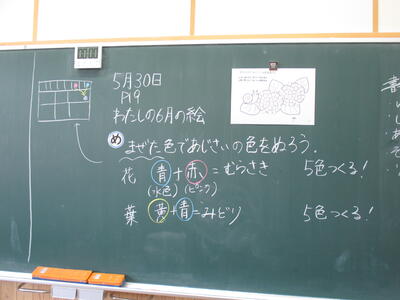 5月30日
P19
わたしの6月の絵
め まぜた色であじさいの色をぬろう.
花 青+赤=むらさき 5色つくる!
(水色)(ピンク)
葉 黄+青=みどり 5色つくる!